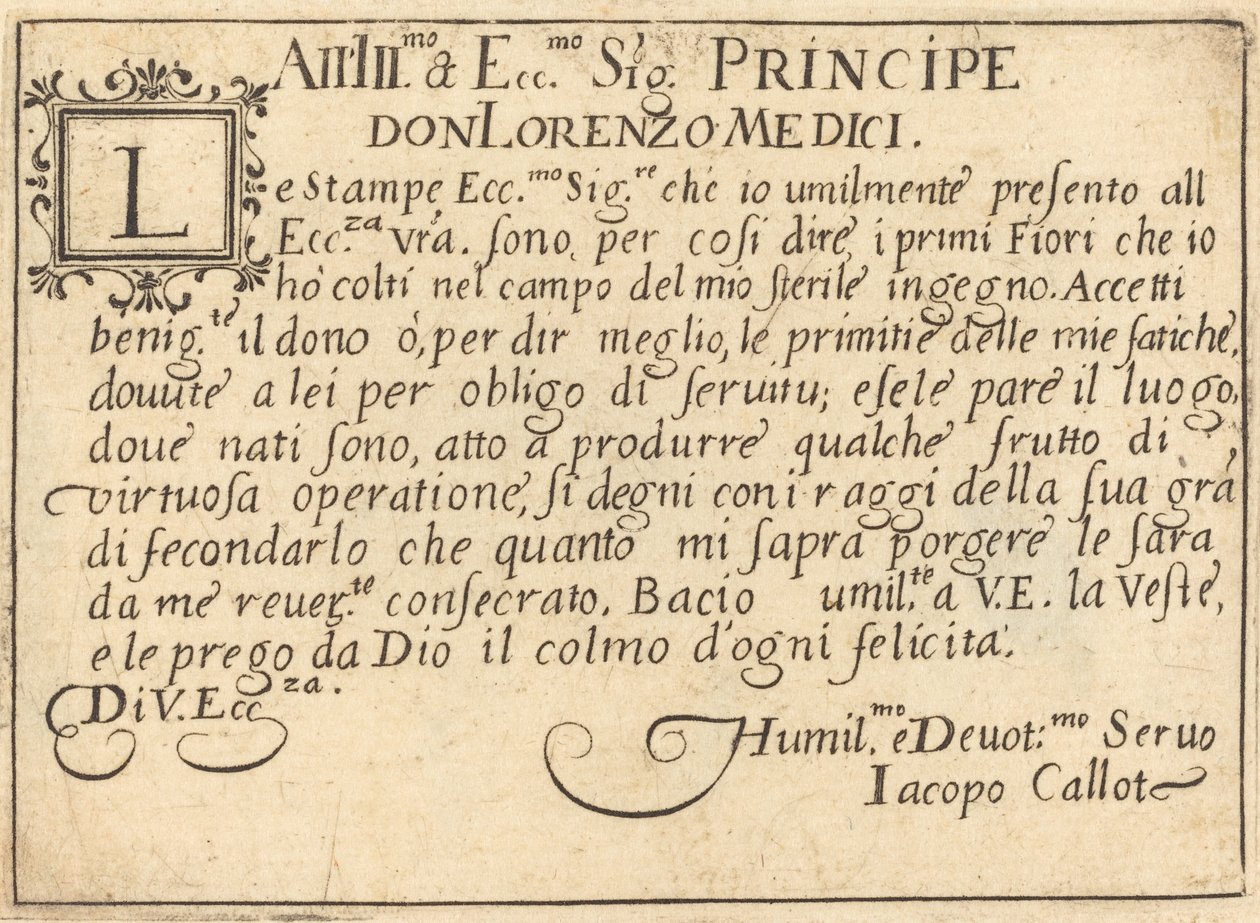 All Ill.mo & Ecc.mo Sig. PRINCIPE
DON LORENZO MEDICI.
Le Stampe Ecc.mo Sig.re che io umilmente preſento all
Ecc.za vrã. ſono, per coſi dire, i primi Fiori che io
hò colti nel campo del mio ſterile ingegno. Accetti
benig.te il dono ò, per dir meglio, le primitie delle mie fatiche,
douute a lei per obligo di ſeruitu; eſele pare il luogo,
doue nati ſono, atto a produrre qualche frutto di
virtuoſa operatione, ſi degni con i raggi della ſua grã,
di fecondarlo che quanto mi ſapra porgere le ſara
da me reuer.te conſecrato. Bacio umil.te a V.E. la Veſte,
e le prego da Dio il colmo d'ogni felicita.
Di V. Ecc.za.
Humil.mo e Deuot:mo Seruo
Iacopo Callot